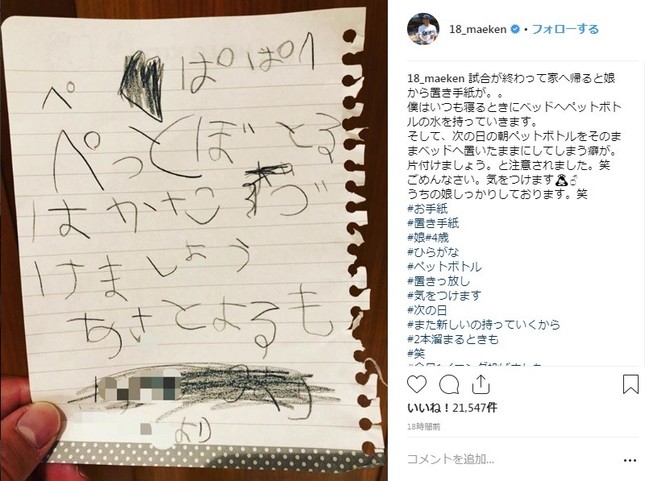 ぱぱへ
ぺ
ぺっとぼとる
はかたづ
けましょう
あさとよるも
より
18_maeken • フォローする
18_maeken 試合が終わって家へ帰ると娘
から置き手紙が。。
僕はいつも寝るときにベッドへペットボト
ルの水を持っていきます。
そして、次の日の朝ペットボトルをそのま
まベッドへ置いたままにしてしまう癖が。
片付けましょう。と注意されました。笑
ごめんなさい。気をつけます
うちの娘しっかりしております。笑
#お手紙
#置き手紙
#娘#4歳
#ひらがな
#ペットボトル
#置きっ放し
#気をつけます
#次の日
#また新しいの持っていくから
#2本溜まるときも
#笑
いいね！21,547件
18時間前
コメントを追加...